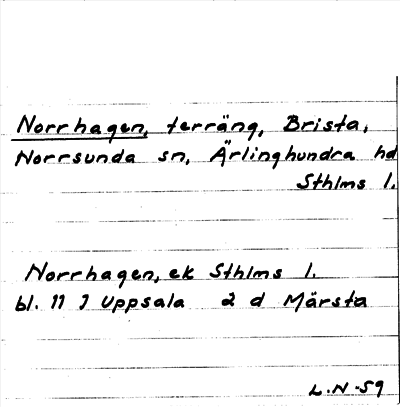 Norrhagen, terräng, Brista,
Norrsunda sn, Ärlinghundra hd
Sthlms l.
Norrhagen, ek Sthlms l.
bl. 11 I Uppsala 2 d Märsta
L.N-59